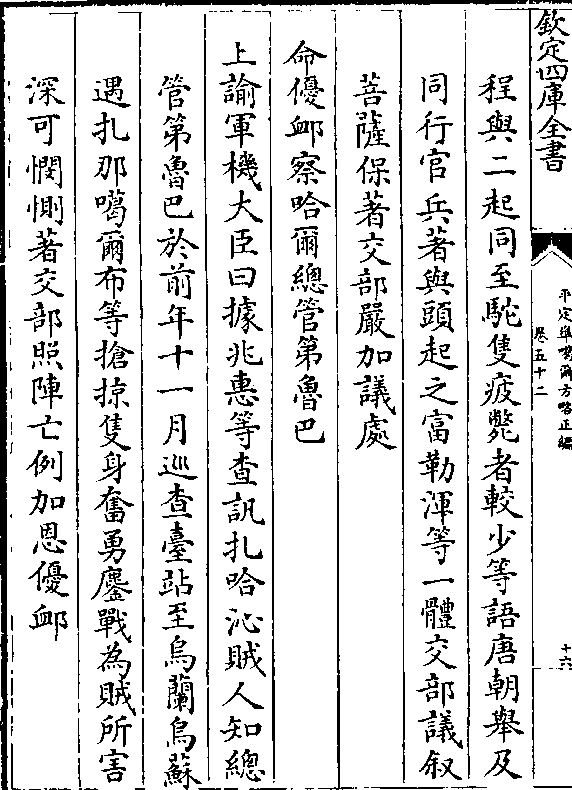 欽定四庫全書
平定準噶爾方略正編
卷五十二
十六
程與二起同至駝隻疲斃者較少等語唐朝舉及
同行官兵著與頭起之富勒渾等一體交部議叙
菩薩保著交部嚴加議處
命優卹察哈爾總管第魯巴
上諭軍機大臣曰據兆惠等查訊扎哈沁賊人知總
管第魯巴於前年十一月巡查臺站至烏蘭烏蘇
遇扎那噶爾布等搶掠隻身奮勇鏖戰為賊所害
深可憫惻著交部照陣亡例加恩優卹